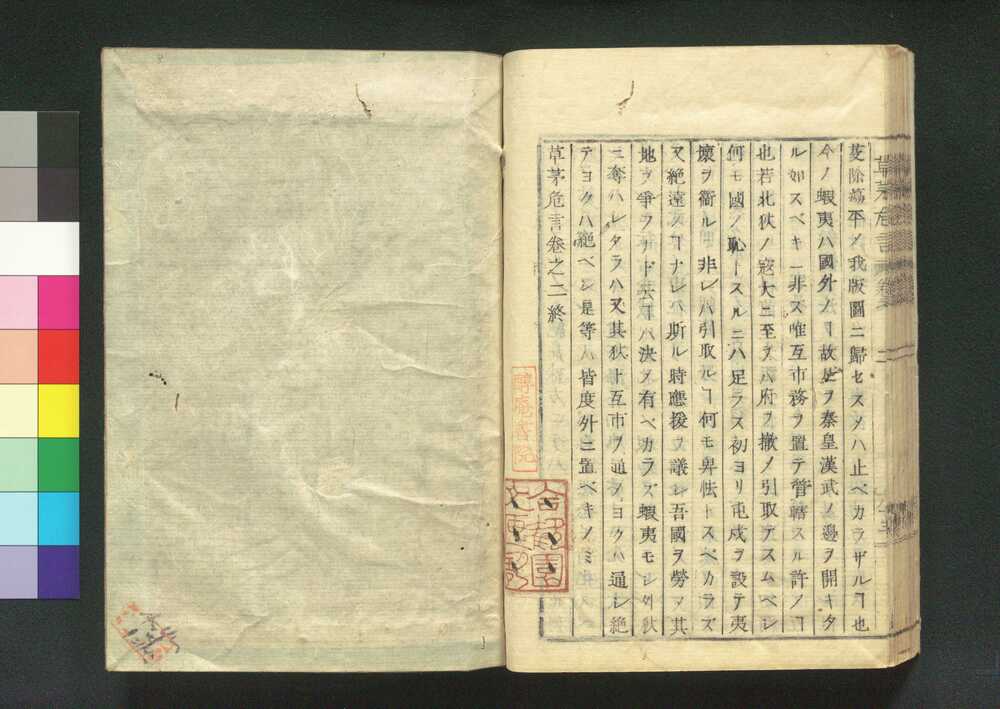 芟除蕩平シ我版圖ニ歸セスメハ止ベカラザルヿ也
今ノ蝦夷ハ國外ノヿ故左ヲ秦皇漢武ノ邊ヲ開キタ
ル如スベキニ非ス唯互市務ヲ置テ管轄スル許ノヿ
也若北狄ノ寇大ニ至ラハ府ヲ撤メ引取テスムベシ
何モ國ノ恥トスルニハ足ラス初ヨリ屯戍ヲ設テ夷
壞ヲ衞ルニ非レハ引取ルヿ何モ卑怯トスベカラズ
又絶遠ノヿナレハ斯ル時應援ヲ議シ吾國ヲ勞メ其
地ヲ爭フナド云ヿハ決メ有ベカラズ蝦夷モシ外狄
ニ奪ハレタラハ又其狄ト互市ヲ通メヨクハ通シ絶
テヨクハ絶ベシ是等ハ皆度外ニ置ベキノミ
草茅危言卷之二終
草茅危言 卷 二